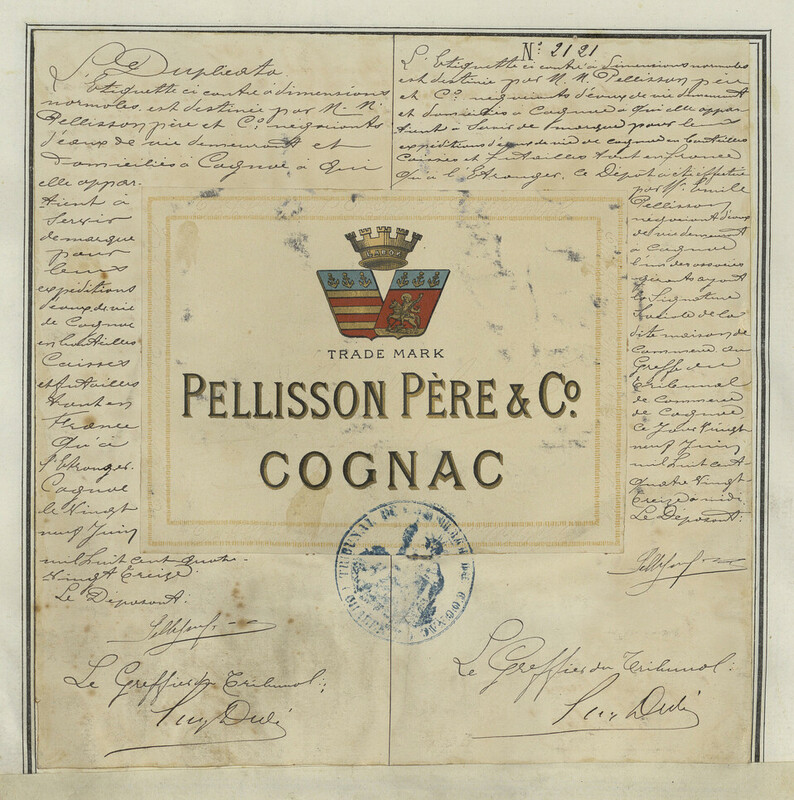 Duplicata
L'Etiquette ci contre à dimensions
normales est destinée par M. M.
Pellisson père et Co. négociants
d'eaux de vie demeurant et
domiciliés à Cognac à qui
elle appar-
tient à
Servir
de marque
pour
leurs
expéditions
d'eaux de vie
de Cognac
en bouteilles
Caisses
et futailles
tant en
France
qu'à
l'Etranger.
Cognac
le Vingt
neuf Juin
mil huit cent quatre-
Vingt Treize.
Le Déposant:
Le Greffier du Tribunal:
No. 2121
L'Etiquette ci contre à dimensions normales
est destinée par M. M. Pellisson père
et Co. négociants d'eaux de vie demeurant
et domiciliés à Cognac à qui elle appar
tient à Servir de marque pour leurs
expéditions d'eaux de vie de Cognac en bouteilles
Caisses et futailles tant en France
qu'à l'Etranger. Ce Dépôt a été effectué
par Mr. Emile
Pellisson
négociant d'eaux
de vie demeurant
à Cognac
l'un des associés
gérants ayant
la Signature
Sociale de la
dite maison de
Commerce au
Greffe du
Tribunal
de Commerce
de Cognac
ce jour Vingt
neuf Juin
mil huit cent
quatre Vingt-
Treize à midi
Le Déposant:
Le Greffier du Tribunal:
TRADE MARK
PELLISSON PÈRE & Co.
COGNAC
TRIBUNAL DE COMMERCE DE COGNAC